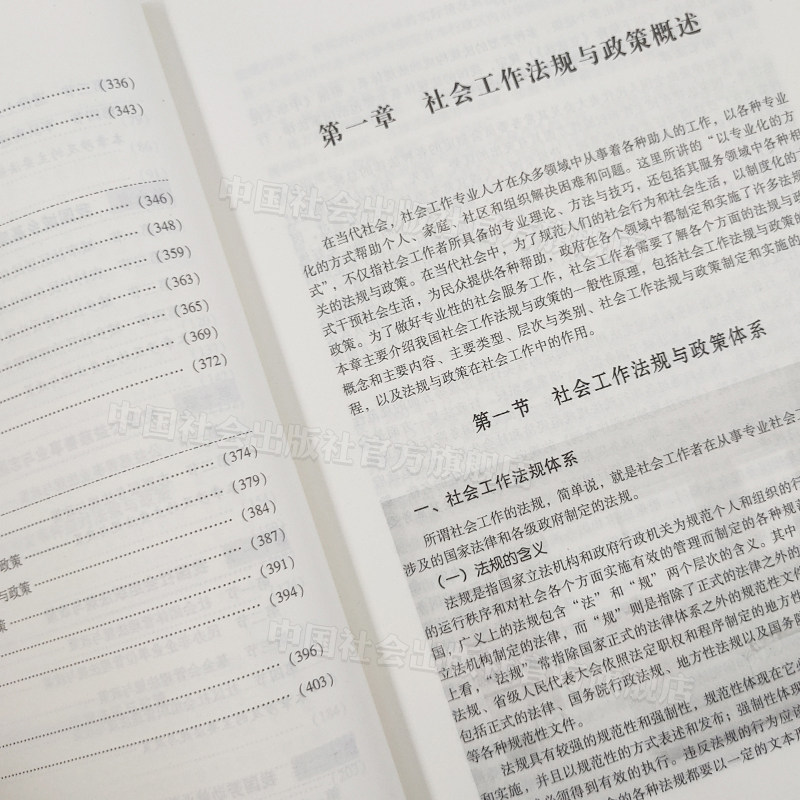 (336)
(343)
(346)
(348)
(359)
(363)
(365)
(369)
(372)
(374)
(379)
(384)
政策 (387)
与政策 (391)
策 (394)
(396)
(403)
第一章 社会工作法规与政策概述
在当代社会，社会工作专业人才在众多领域中从事着各种助人的工作，以各种专业
化的方式帮助个人、家庭、社区和组织解决困难和问题。这里所讲的“以专业化的方
式”，不仅指社会工作者所具备的专业理论、方法与技巧，还包括其服务领域中各种相
关的法规与政策。在当代社会中，为了规范人们的社会行为和社会生活，以制度化的
式干预社会生活，为民众提供各种帮助，政府在各个领域中都制定和实施了许多法规
政策。为了做好专业性的社会服务工作，社会工作者需要了解各个方面的法规与政
本章主要介绍我国社会工作法规与政策的一般性原理，包括社会工作法规与政策的
概念和主要内容、主要类型、层次与类别、社会工作法规与政策制定和实施的
程，以及法规与政策在社会工作中的作用。
第一节 社会工作法规与政策体系
一、社会工作法规体系
所谓社会工作的法规，简单说，就是社会工作者在从事专业社会工
涉及的国家法律和各级政府制定的法规。
（一）法规的含义
法规是指国家立法机构和政府行政机关为规范个人和组织的行
的运行秩序和对社会各个方面实施有效的管理而制定的各种规
国，广义上的法规包含“法”和“规”两个层次的含义。其中
立法机构制定的法律，而“规”则是指除了正式的法律之外的
上看，“法规”常指除国家正式的法律体系之外的规范性文件
法规、省级人民代表大会依照法定职权和程序制定的地方性
包括正式的法律、国务院行政法规、地方性法规以及国务院
等各种规范性文件。
法规具有较强的规范性和强制性，规范性体现在它
和实施，并且以规范性的方式表述和发布；强制性体现
必须得到有效的执行。违反法规的行为应
的各种法规都要以一定的文本
中国社会出版社官方旗舰店
中国社会出版社官方旗舰店
中国社会出版社官方旗舰店